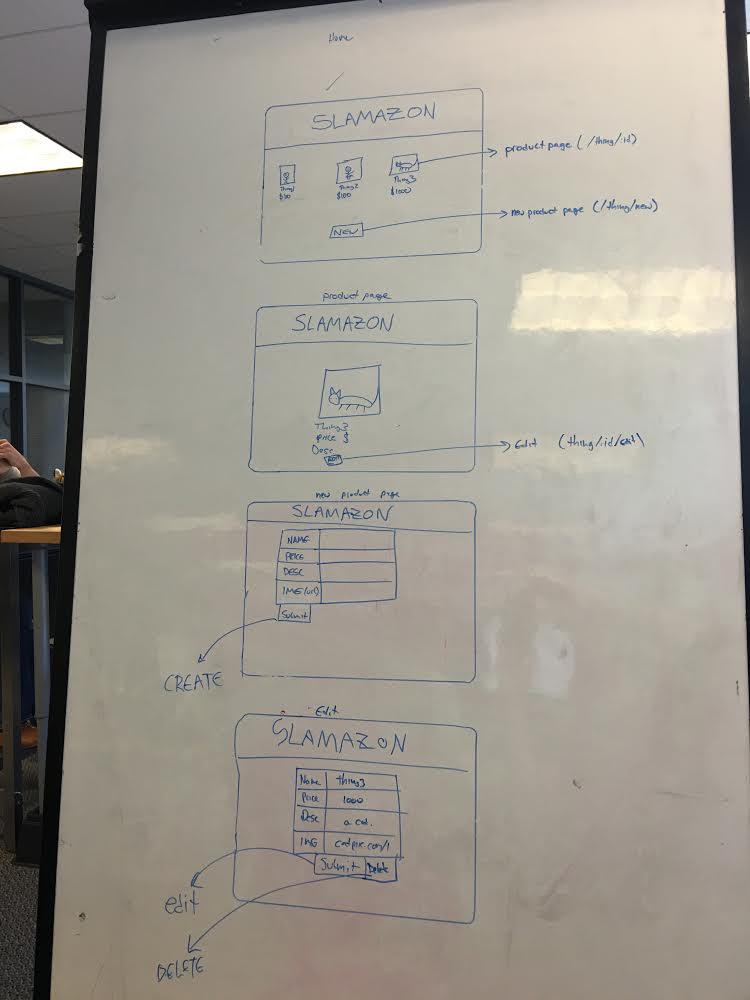 Home
SLAMAZON
product page (/thing/:id)
Thing1
Thing2
Thing3
$10
$100
$1000
new product page (/thing/new)
NEW
product page
SLAMAZON
Thing3
price $
Desc
Edit (thing/:id/edit)
new product page
SLAMAZON
NAME
PRICE
DESC
IMG (url)
Submit
CREATE
Edit
SLAMAZON
Name thing3
Price 1000
Desc a cat.
IMG catpix.com/1
Submit Delete
edit
DELETE